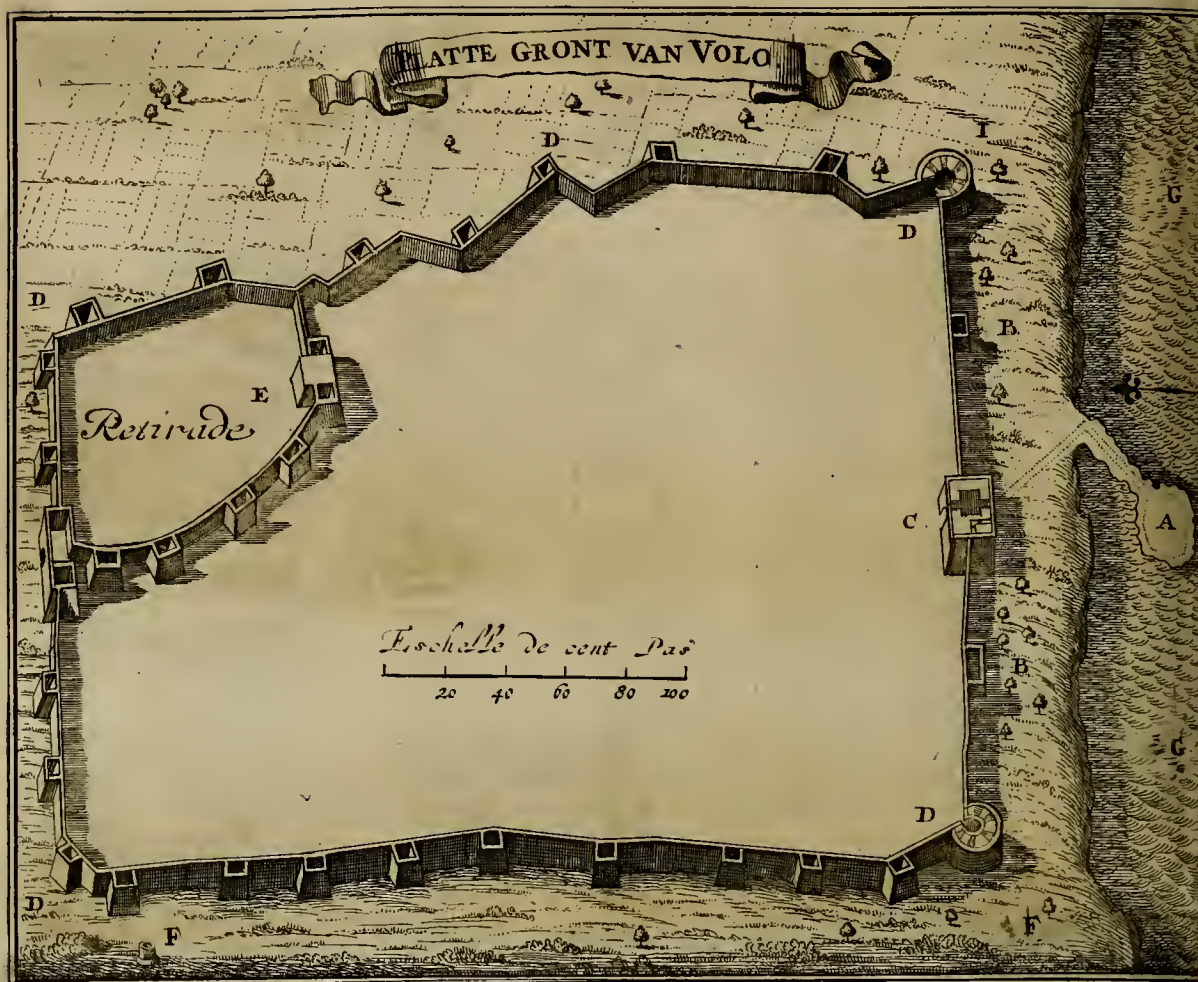 PLATTE GRONT VAN VOLO
D
I
G
D
D
B
E
Retirade
C
A
Eschelle de cent Pas
20 40 60 80 100
B
G
D
D
F
F